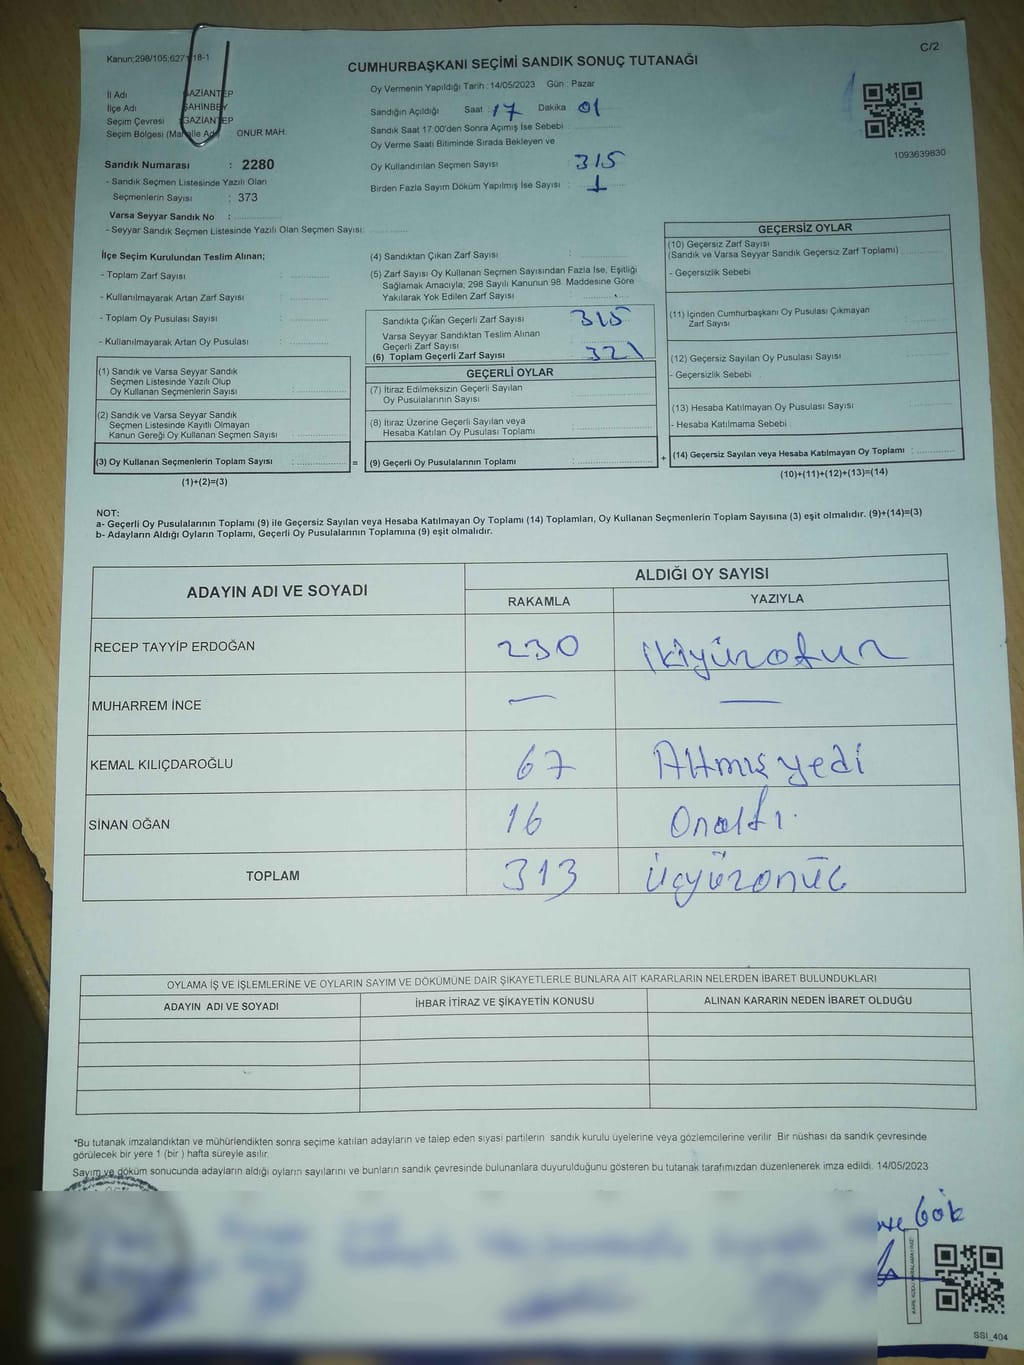 Kanun;298/105;627 18-1
C/2
CUMHURBAŞKANI SEÇİMİ SANDIK SONUÇ TUTANAĞI
Oy Vermenin Yapıldığı Tarih : 14/05/2023 Gün : Pazar
İl Adı GAZİANTEP
İlçe Adı ŞAHİNBEY
Seçim Çevresi GAZİANTEP
Seçim Bölgesi (Mahalle Adı) ONUR MAH.
Sandığın Açıldığı Saat : 17 Dakika 01
Sandık Saat 17.00'den Sonra Açımış İse Sebebi :
Oy Verme Saati Bitiminde Sırada Bekleyen ve
Oy Kullandırılan Seçmen Sayısı : 315
Birden Fazla Sayım Döküm Yapılmış İse Sayısı : 1
1093639830
Sandık Numarası : 2280
- Sandık Seçmen Listesinde Yazılı Olan
Seçmenlerin Sayısı : 373
Varsa Seyyar Sandık No :
- Seyyar Sandık Seçmen Listesinde Yazılı Olan Seçmen Sayısı:
İlçe Seçim Kurulundan Teslim Alınan;
- Toplam Zarf Sayısı :
- Kullanılmayarak Artan Zarf Sayısı :
- Toplam Oy Pusulası Sayısı :
- Kullanılmayarak Artan Oy Pusulası :
(1) Sandık ve Varsa Seyyar Sandık
Seçmen Listesinde Yazılı Olup
Oy Kullanan Seçmenlerin Sayısı :
(2) Sandık ve Varsa Seyyar Sandık
Seçmen Listesinde Kayıtlı Olmayan
Kanun Gereği Oy Kullanan Seçmen Sayısı :
(3) Oy Kullanan Seçmenlerin Toplam Sayısı :
(1)+(2)=(3)
(4) Sandıktan Çıkan Zarf Sayısı :
(5) Zarf Sayısı Oy Kullanan Seçmen Sayısından Fazla İse, Eşitliği
Sağlamak Amacıyla; 298 Sayılı Kanunun 98. Maddesine Göre
Yakılarak Yok Edilen Zarf Sayısı :
Sandıkta Çıkan Geçerli Zarf Sayısı 315
Varsa Seyyar Sandıktan Teslim Alınan
Geçerli Zarf Sayısı
(6) Toplam Geçerli Zarf Sayısı 321
=
GEÇERLİ OYLAR
(7) İtiraz Edilmeksizin Geçerli Sayılan
Oy Pusulalarının Sayısı :
(8) İtiraz Üzerine Geçerli Sayılan veya
Hesaba Katılan Oy Pusulası Toplamı :
(9) Geçerli Oy Pusulalarının Toplamı :
+
GEÇERSİZ OYLAR
(10) Geçersiz Zarf Sayısı
(Sandık ve Varsa Seyyar Sandık Geçersiz Zarf Toplamı)
- Geçersizlik Sebebi
(11) İçinden Cumhurbaşkanı Oy Pusulası Çıkmayan
Zarf Sayısı
(12) Geçersiz Sayılan Oy Pusulası Sayısı :
- Geçersizlik Sebebi
(13) Hesaba Katılmayan Oy Pusulası Sayısı :
- Hesaba Katılmama Sebebi
(14) Geçersiz Sayılan veya Hesaba Katılmayan Oy Toplamı :
(10)+(11)+(12)+(13)=(14)
NOT:
a- Geçerli Oy Pusulalarının Toplamı (9) ile Geçersiz Sayılan veya Hesaba Katılmayan Oy Toplamı (14) Toplamları, Oy Kullanan Seçmenlerin Toplam Sayısına (3) eşit olmalıdır. (9)+(14)=(3)
b- Adayların Aldığı Oyların Toplamı, Geçerli Oy Pusulalarının Toplamına (9) eşit olmalıdır.
ADAYIN ADI VE SOYADI
ALDIĞI OY SAYISI
RAKAMLA YAZIYLA
RECEP TAYYİP ERDOĞAN 230 ikiyüzotuz
MUHARREM İNCE — —
KEMAL KILIÇDAROĞLU 67 Altmış yedi
SİNAN OĞAN 16 Onaltı.
TOPLAM 313 Üçyüzonüç
OYLAMA İŞ VE İŞLEMLERİNE VE OYLARIN SAYIM VE DÖKÜMÜNE DAİR ŞİKAYETLERLE BUNLARA AİT KARARLARIN NELERDEN İBARET BULUNDUKLARI
ADAYIN ADI VE SOYADI İHBAR İTİRAZ VE ŞİKAYETİN KONUSU ALINAN KARARIN NEDEN İBARET OLDUĞU
*Bu tutanak imzalandıktan ve mühürlendikten sonra seçime katılan adayların ve talep eden siyasi partilerin sandık kurulu üyelerine veya gözlemcilerine verilir. Bir nüshası da sandık çevresinde
görülecek bir yere 1 (bir) hafta süreyle asılır.
Sayım ve döküm sonucunda adayların aldığı oyların sayılarını ve bunların sandık çevresinde bulunanlara duyurulduğunu gösteren bu tutanak tarafımızdan düzenlenerek imza edildi. 14/05/2023
Gök
SSI_404